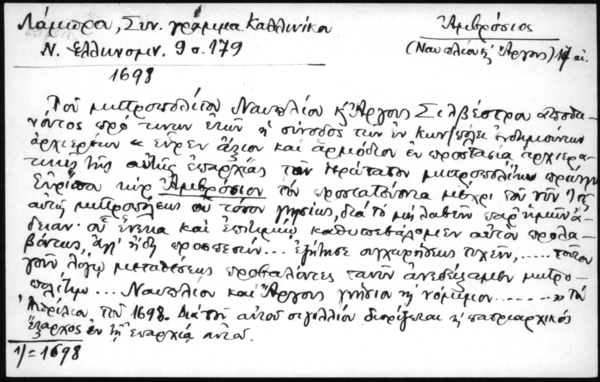 Λάμπρου, Συν. γράμμα Καλλινίκου
Ν. Ελληνομν. 9 σ. 179
1698
Ἀμβρόσιος
(Ναυπλίου κ' Ἄργους) 17 αἰ.
Τοῦ μητροπολίτου Ναυπλίου κ' Ἄργους Σιλβέστρου ἀποθα-
νόντος πρό τινων ἐτῶν ἡ σύνοδος τῶν ἐν Κων/πόλει ἐνδημούντων
ἀρχιερέων « εὗρεν ἄξιον καὶ ἁρμόδιον ἐν προστασίᾳ ἀρχιερα-
τικῇ τῆς αὐτῆς ἐπαρχίας τὸν ἱερώτατον μητροπολίτην πρώην
Εὐρίπου κὺρ Ἀμβρόσιον τὸν προστατεύοντα μέχρι τοῦ νῦν
αὐτῇ μητροπόλεως οὐ τόσον γνησίως, διὰ τὸ μὴ λαβεῖν παρ' ἡμῶν ἄ-
δειαν· οὗ ἕνεκα καὶ ἐπιτιμίῳ καθυπεβάλομεν αὐτὸν προλα-
βόντως, ἀλλ' ἤδη προσπεσὼν ... ἐζήτησε συγχωρήσεως τυχεῖν, ..... τοῦτον
γοῦν λόγῳ μεταθέσεως προβαλόντες τανῦν ἀνεδείξαμεν μητρο-
πολίτην ... Ναυπλίου καὶ Ἄργους γνήσιον κ' νόμιμον ....... » Τῷ
Ἀπρίλιον τοῦ 1698. Διὰ τοῦ αὐτοῦ σιγιλλίου διορίζεται κ' πατριαρχικὸς
ἔξαρχος ἐν τῇ ἐπαρχίᾳ αὐτοῦ.
1/ = 1698